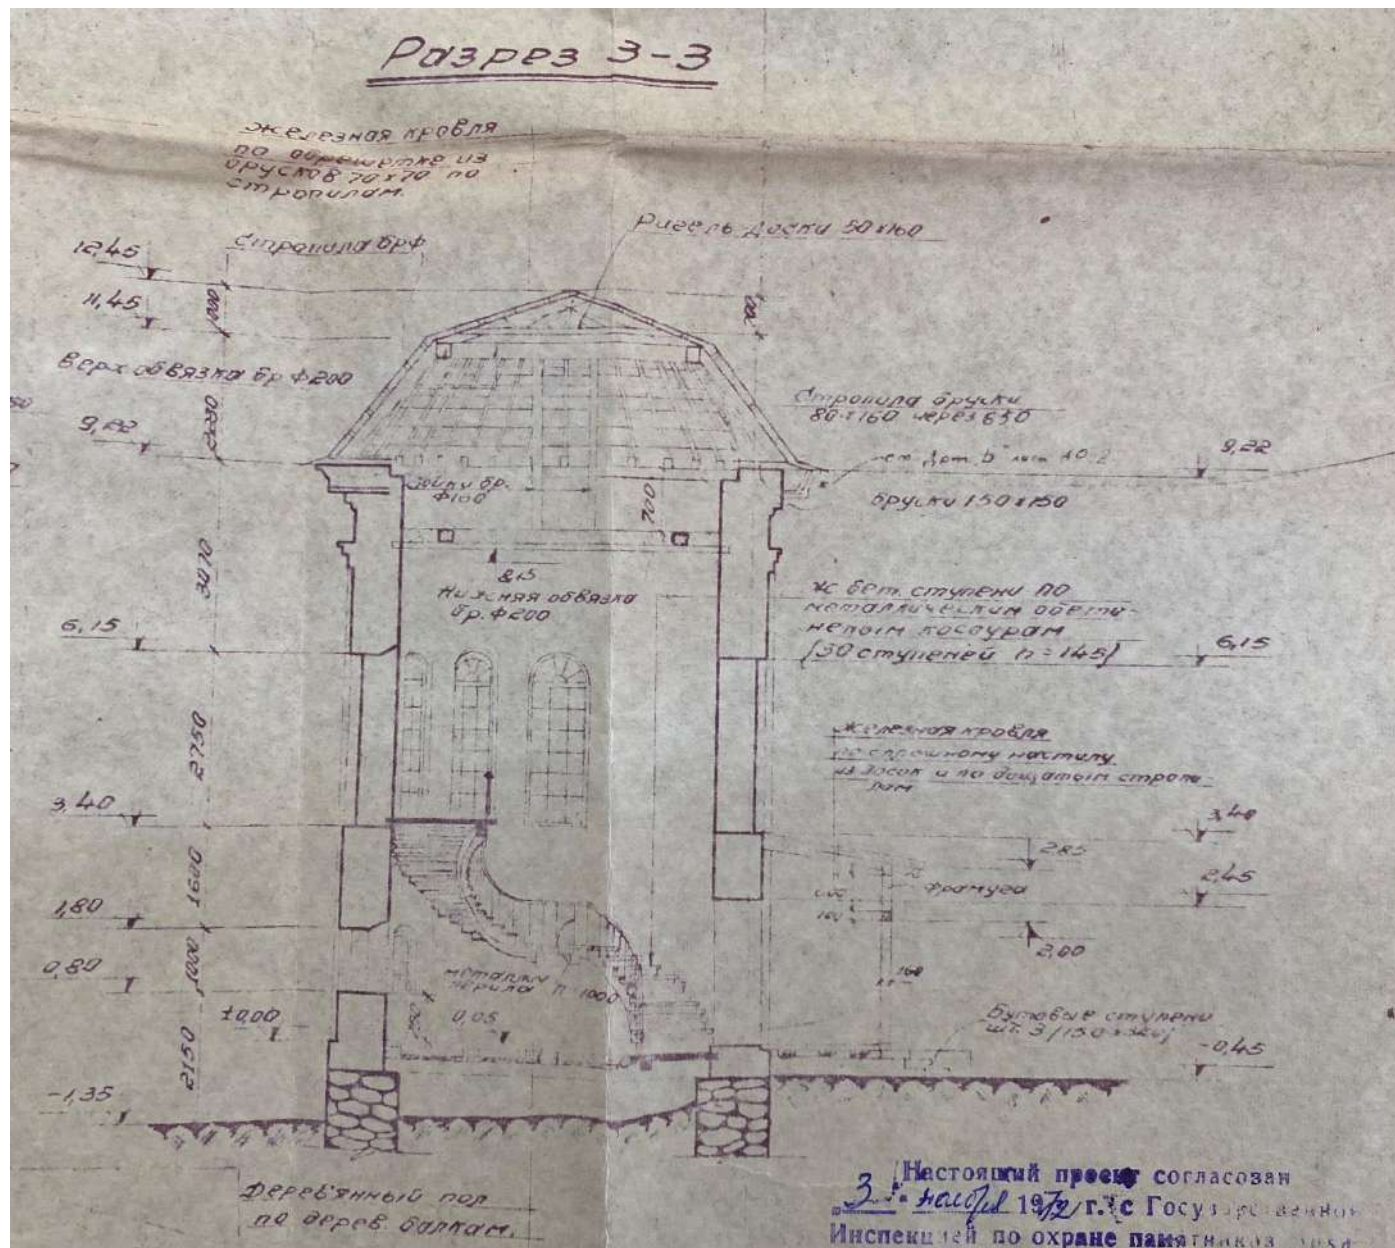 Разрез 3-3
железная кровля
по обрешетке из
брусков 70х70 по
стропилам.
Стропила брф
Ригель доски 50х160
12,45
11,45
1000
верх обвязка бр ф200
2220
9,22
Стропила бруски
80х160 через 650
9,22
бруски 150х150
бр.
ф100
700
8,15
Нижняя обвязка
бр. ф200
3070
6,15
ж бет. ступени по
металлическим обети-
неным косоурам
(30 ступеней h=145)
6,15
2750
железная кровля
по сплошному настилу
из досок и по дощатым стропи-
лам
3,40
3,40
2,85
2,45
фрамуга
2,00
160
1600
1,80
1000
0,80
металлич
перила h=1000
±0,00
0,05
Бутовые ступени
шт. 3
-0,45
2150
-1,35
Деревянный пол
по дерев. балкам.
Настоящий проект согласован
"3" ноября 1972 г. с Государственной
Инспекцией по охране памятников